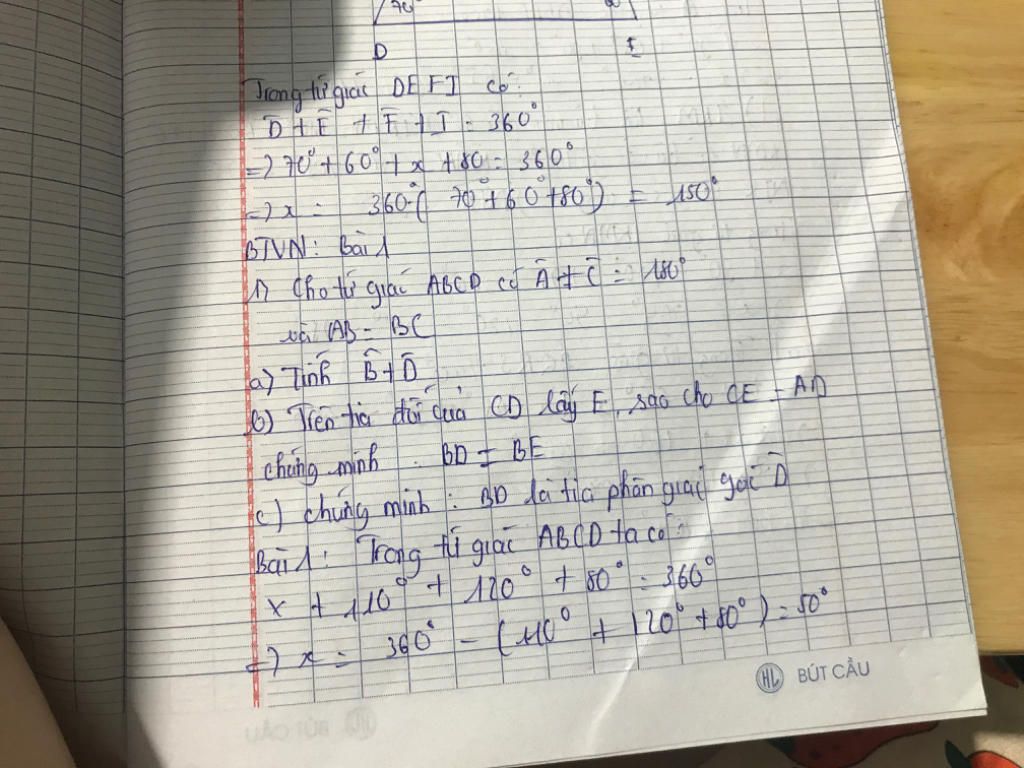 70°
D E
Trong tứ giác DEFI có:
D̂ + Ê + F̂ + Î = 360°
=> 70° + 60° + x + 80 = 360°
=> x = 360°-( 70° + 60° + 80° ) = 150°
BTVN: Bài 1
1) Cho tứ giác ABCD có Â + Ĉ = 180°
và AB = BC
a) Tính B̂ + D̂
b) Trên tia đối của CD lấy E, sao cho CE = AD
chứng minh : BD = BE
c) chứng minh : BD là tia phân giác góc D̂
Bài 1: Trong tứ giác ABCD ta có:
x + 110° + 120° + 80° = 360°
=> x = 360° - (110° + 120° + 80°) = 50°
HL BÚT CẦU